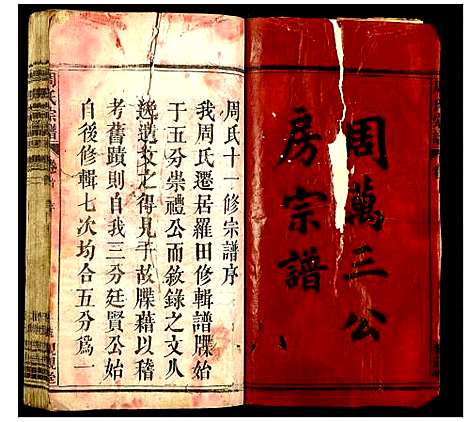 周萬三公
房宗譜
周氏十一修宗譜序
我周氏遷居羅田修輯譜牒始
于五分崇禮公而敘錄之文人
逸邁文之得見于故牒藉以稽
考舊蹟則自我三分廷賢公始
自後修輯七次均合五分爲一
周氏宗譜